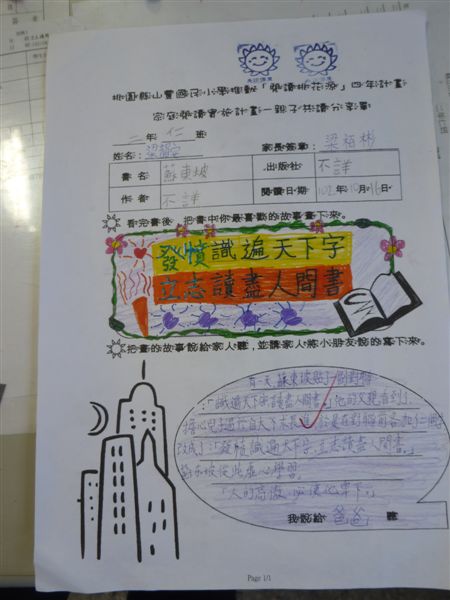 桃園縣山豐國民小學推動「閱讀桃花源」四年計畫
家庭閱讀實施計畫—親子共讀分享單
二年仁班
姓名: 家長簽章:
書名 蘇東坡 出版社 不詳
作者 不詳 閱讀日期 102年10月16日
看完書後,把書中你最喜歡的故事畫下來。
發憤識遍天下字
立志讀盡人間書
把畫的故事說給家人聽,並請家人將小朋友說的寫下來。
有一天蘇東坡貼了一個對聯
:「識遍天下字讀盡人間書」他的父親看到了
擔心兒子過於自大不長進,於是在對聯前各加仁個字
改成了「發憤識遍天下字,立志讀盡人間書」
蘇東坡從此虛心學習
「人的高傲,必使他卑下。」
我說給 爸爸 聽
Page 1/1